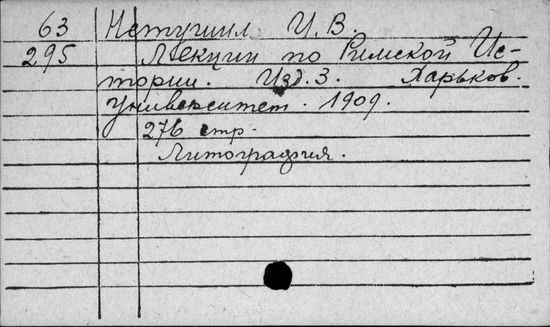 63 Нетушил И. В.
295 Лекции по Римской Ис-
тории. Изд. 3. Харьков.
Университет. 1909.
276 стр.
Литография.